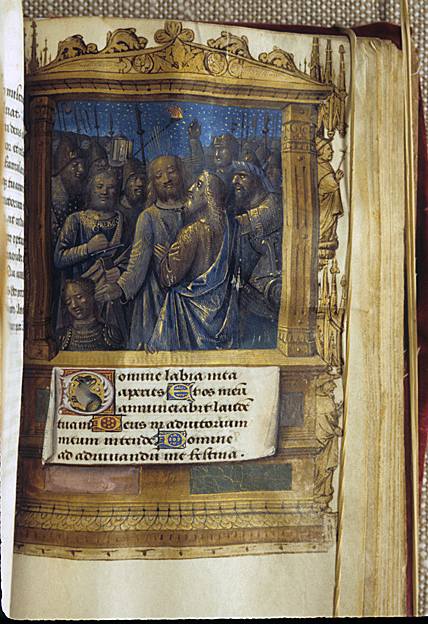 Domine labia mea
aperies Et os meū
annunciabit laudē
tuam Deus in adiutorium
meum intende Domine
ad adiuuandū me festina.